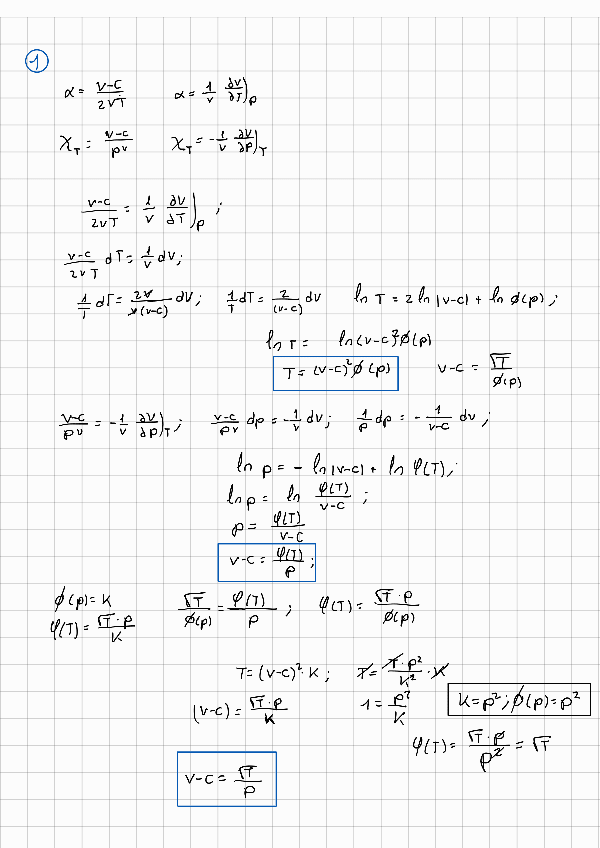 1
α = (v-c)/(2vT)    α = 1/v ∂v/∂T)_p
χ_T = (v-c)/(pv)    χ_T = -1/v ∂v/∂p)_T
(v-c)/(2vT) = 1/v ∂v/∂T)_p ;
(v-c)/(2vT) dT = 1/v dv;
1/T dT = 2v/(v(v-c)) dv;    1/T dT = 2/(v-c) dv    ln T = 2 ln |v-c| + ln φ(p);
ln T = ln (v-c)² φ(p)
T = (v-c)² φ(p)    v-c = √T/φ(p)
(v-c)/(pv) = -1/v ∂v/∂p)_T ;    (v-c)/(pv) dp = -1/v dv;    1/p dp = - 1/(v-c) dv ;
ln p = - ln |v-c| + ln φ(T);
ln p = ln φ(T)/(v-c) ;
p = φ(T)/(v-c)
v-c = φ(T)/p ;
φ(p) = K    √T/φ(p) = φ(T)/p ;    φ(T) = √T·p/φ(p)
φ(T) = √T·p/K
T = (v-c)²·K ;    T = T·p²/K² · K
(v-c) = √T·p/K    1 = p²/K    K = p²; φ(p) = p²
φ(T) = √T·p/p² = √T
v-c = √T/p